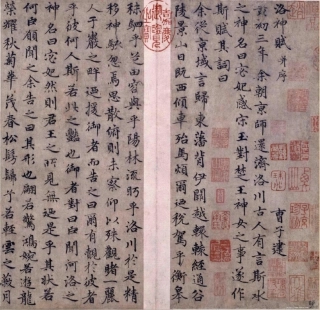 洛神賦 并序
曹子建
黃初三年余朝京師還濟洛川古人有言斯水
之神名曰宓妃感宋玉對楚王神女之事遂作
斯賦其詞曰
余從京域言歸東藩背伊闕越轘轅經通谷
陵景山日既西傾車殆馬煩爾迺稅駕乎蘅皋
秣駟乎芝田容與乎楊林流眄乎洛川於是精
移神駭忽焉思散俯則未察仰以殊觀睹一麗
人于巖之畔迺援御者而告之曰爾有覿於彼者
乎彼何人斯若此之豔也御者對曰臣聞河洛之
神名曰宓妃然則君王之所見無迺是乎其狀若
何臣願聞之余告之曰其形也翩若驚鴻婉若遊龍
榮耀秋菊華茂春松髣髴兮若輕雲之蔽月